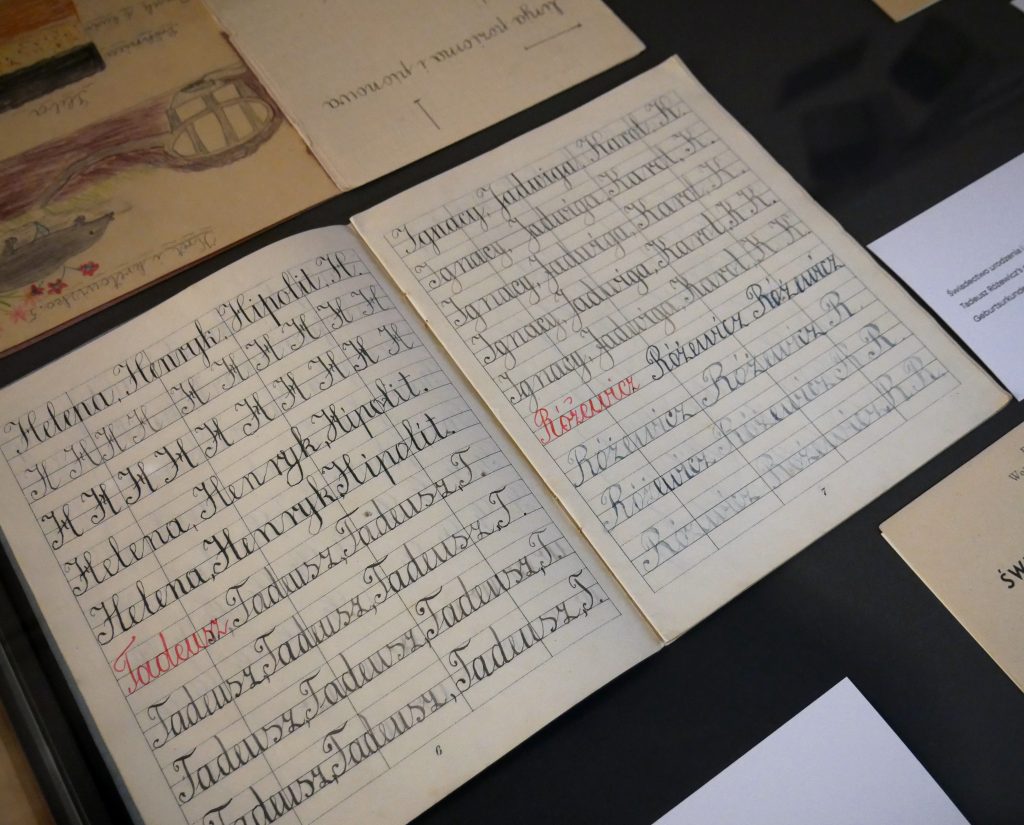 Żaba
Kret i kretowisko
linja pozioma i pionowa
Helena, Henryk, Hipolit. H.
H H H H H H H H H H
H H H H H H H H H
Helena, Henryk, Hipolit.
Helena, Henryk, Hipolit.
Tadeusz, Tadeusz, Tadeusz, T.
Tadeusz, Tadeusz, Tadeusz, T.
Tadeusz, Tadeusz, Tadeusz, T.
Tadeusz, Tadeusz, Tadeusz, T.
6
Ignacy, Jadwiga, Karol. K
Ignacy, Jadwiga, Karol. K.
Ignacy, Jadwiga, Karol. K.
Ignacy, Jadwiga, Karol, K K.
Ignacy, Jadwiga, Karol K K
Różewicz Różewicz Różewicz
Różewicz Różewicz R
Różewicz Różewicz R R.
Różewicz Różewicz, R. R.
7
Świadectwo urodzenia
Tadeusz Różewicz's
Geburtsurkunde
ŚW